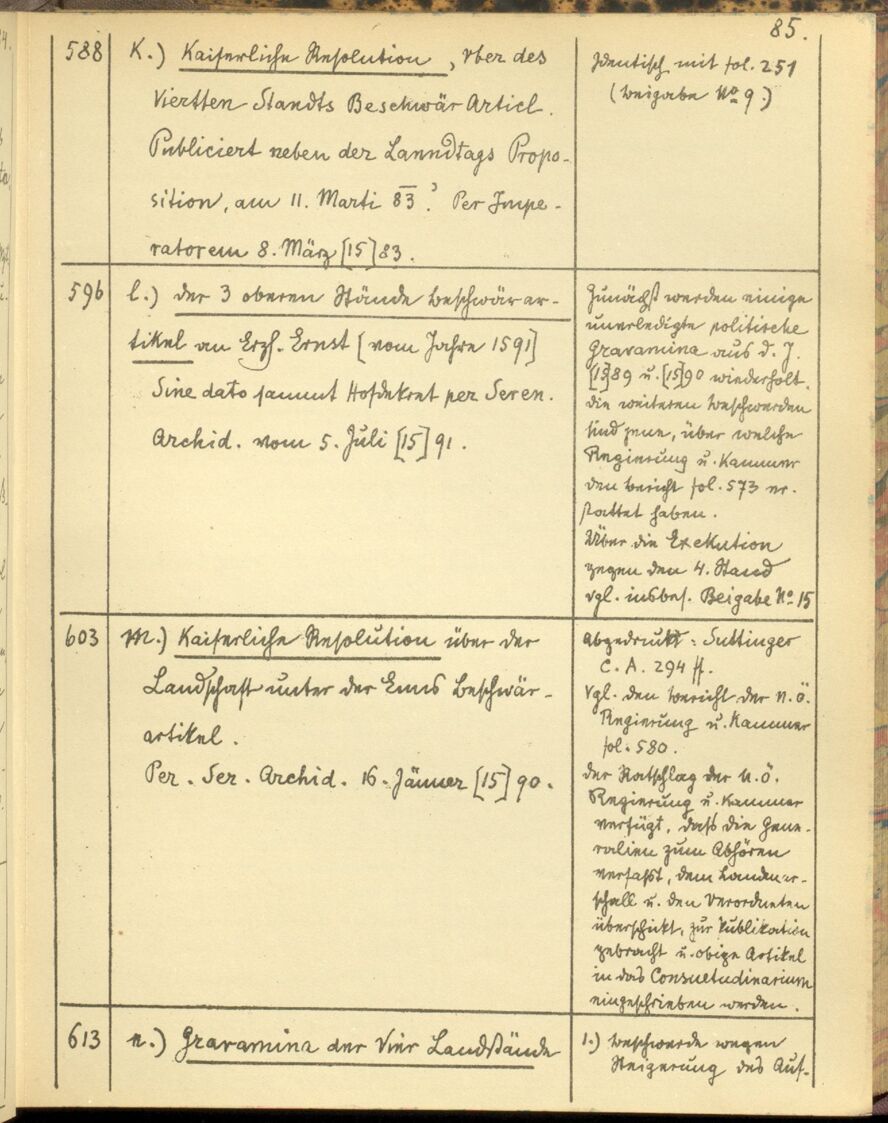 85.
588
K.) Kaiserliche Resolution, vber des
Viertten Standts Beschwär Articl.
Publiciert neben der Lanndtags Propo-
sition, am 11. Marti 83. Per Impe-
ratorem 8. März [15]83.
Identisch mit fol. 251
(Beigabe No 9.)
596
l.) Der 3 oberen Stände Beschwärar-
tikel an Erzh. Ernst [vom Jahre 1591]
Sine dato sammt Hofdekret per Seren.
Archid. vom 5. Juli [15]91.
Zunächst werden einige
unerledigte politische
Gravamina aus d. J.
[15]89 u. [15]90 wiederholt.
Die weiteren Beschwerden
sind jene, über welche
Regierung u. Kammer
den Bericht fol. 573 er-
stattet haben.
Über die Exekution
gegen den 4. Stand
vgl. insbes. Beigabe No 15
603
m.) Kaiserliche Resolution über der
Landschaft unter der Enns Beschwär-
artikel.
Per. Ser. Archid. 16. Jänner [15]90.
Abgedruckt: Suttinger
C. A. 294 ff.
Vgl. den Bericht der n. ö.
Regierung u. Kammer
fol. 580.
Der Ratschlag der n. ö.
Regierung u. Kammer
verfügt, dass die Gene-
ralien zum Abhören
verfasst, dem Landmar-
schall u. den Verordneten
überschickt, zur Publikation
gebracht u. obige Artikel
in das Consuetudinarium
eingeschrieben werden.
613
n.) Gravamina der Vier Landstände
1.) Beschwerde wegen
Steigerung des Auf-